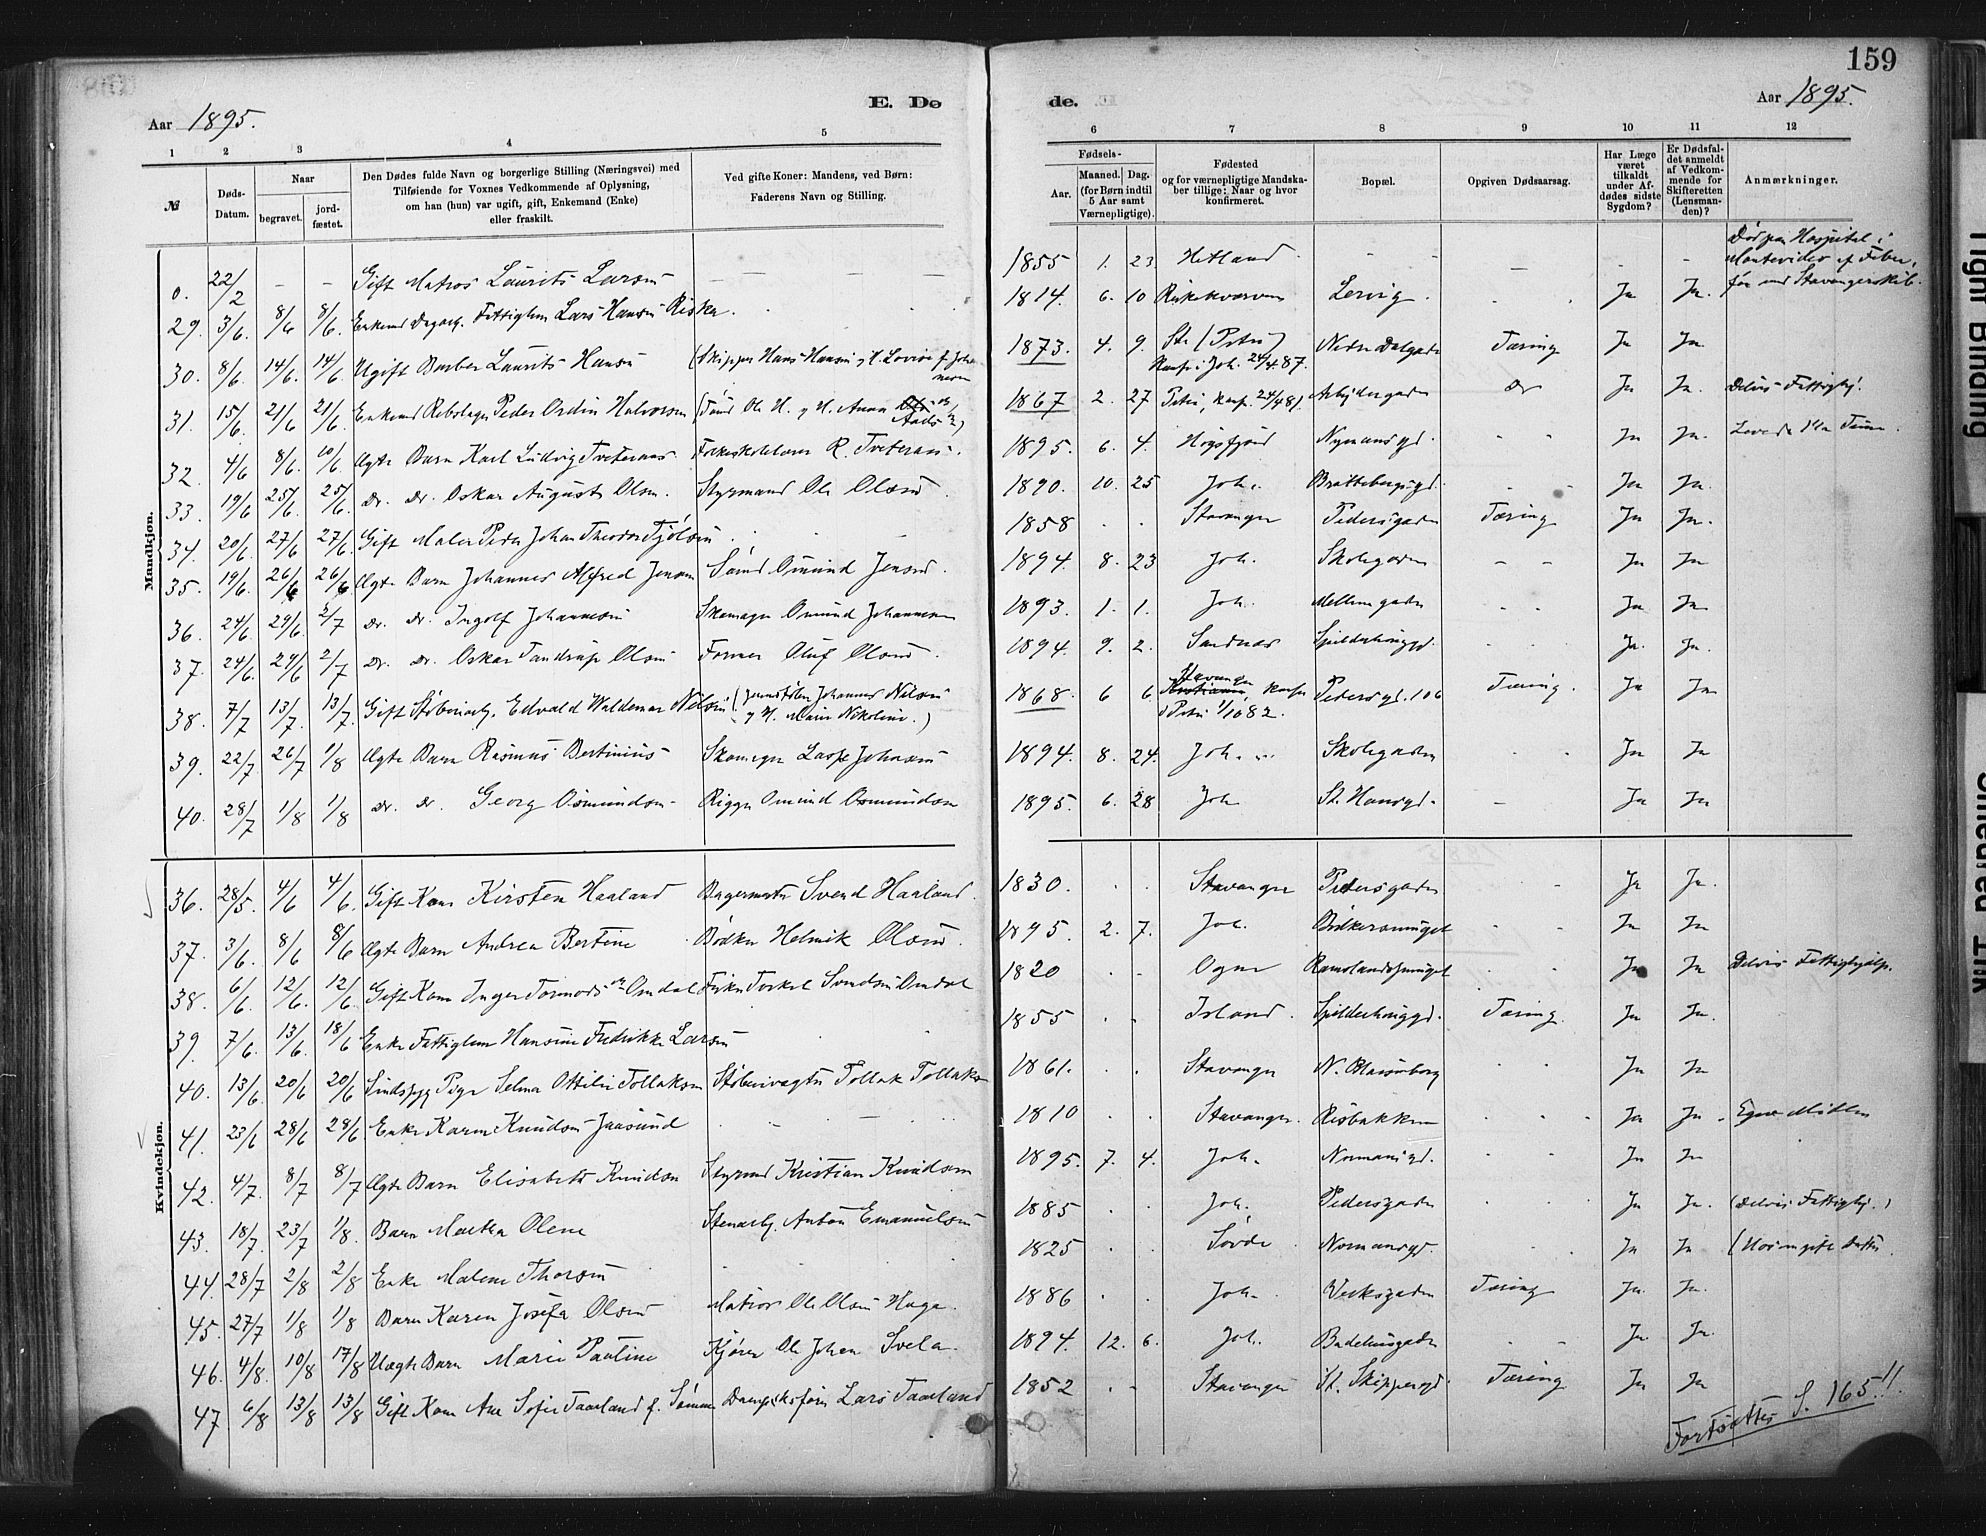 159
E. Dø
de.
Aar 1895.
Aar 1895.
1 2 3 4 5 6 7 8 9 10 11 12
№
Døds-Datum.
Naar
begravet.
jordfæstet.
Den Dødes fulde Navn og borgerlige Stilling (Næringsvei) med
Tilføiende for Voxnes Vedkommende af Oplysning,
om han (hun) var ugift, gift, Enkemand (Enke)
eller fraskilt.
Ved gifte Koner: Mandens, ved Børn:
Faderens Navn og Stilling.
Fødsels-
Aar.
Maaned. Dag.
(for Børn indtil
5 Aar samt
Værnepligtige).
Fødested
og for værnepligtige Mandska-
ber tillige: Naar og hvor
konfirmeret.
Bopæl.
Opgiven Dødsaarsag.
Har Læge
været
tilkaldt
under Af-
dødes sidste
Sygdom?
Er Dødsfal-
det anmeldt
af Vedkom-
mende for
Skifteretten
(Lensman-
den)?
Anmærkninger.
Mandkjøn.
0. 22/2 - - Gift Matros Laurits Larsen - - 1855 1. 23 Hetland - - - - - Død paa Hospital i Montevideo af Feber, for med Stavangerskib.
29. 3/6. 8/6 8/6. Enkemd Dagarb. Fattiglem Lars Hansen Riska. 1814 6. 10 Lervig. Ja Ja.
30. 8/6. 14/6. 14/6. Ugift Barber Laurits Hansen (Skipper Hans Hansen og H. Lovise f. 1873. 4. 9. St. (Petri) Konf. i Joh. 24/4 87. Nedre Dalgade Tæring Ja Ja
31. 15/6. 21/6 21/6. Enkemd Rebslager Peder Ordin Halvorsen (Tømd Ole H. og H. Anna 1867 2. 27 Petri, konf. 24/4 81. Arbeidergaden Do Ja Ja. Delvis Fattighj.
32. 4/6 8/6. 10/6. Ægte Barn Karl Ludvig Tveteraas Folkeskolelærer R. Tveteraas. 1895. 6. 4. Høgsfjord Nymansgd. Ja Ja. Levede 1/2 Time.
33. 19/6 25/6. 25/6. Do. Do. Oskar August Olsen. Styrmand Ole Olsen. 1890. 10. 25 Joh. Brattebergsgd. Ja Ja.
34. 20/6. 27/6 27/6. Gift Maler Peder Johan Theodor Fjølsen. 1858 . . Stavanger Pedersgaden Tæring Ja Ja.
35. 19/6. 26/6 26/6 Ægte Barn Johannes Alfred Jensen Tømd Osmund Jensen. 1894. 8. 23 Joh. Skolegaden - - Ja Ja
36. 24/6. 29/6. 2/7 Do. Do. Ingolf Johannesen Skomager Osmund Johannesen 1893. 1. 1. Joh. Mellemgaden Ja Ja
37. 24/6. 29/6. 2/7 Do. Do. Oskar Tandrup Olsen Former Oluf Olsen. 1894. 9. 2. Sandnes Spilderhauggd. Ja. Ja.
38. 7/7 13/7. 13/7. Gift Støberiarb. Edvald Waldemar Nilsen (Johannes Nilsen og H. Maren Nikoline.) 1868. 6 6. Stavanger Kristiania, konf. i Petri 1/10 82. Pedersgd. 106 Tæring. Ja Ja
39. 22/7. 26/7 1/8 Ægte Barn Rasmus Bertinius Skomager Johnsen 1894. 8. 24. Joh. Skolegaden Ja Ja
40. 28/7 1/8 1/8 Do. Do. Georg Osmundsen Rigger Osmund Osmundsen 1895. 6. 28 Joh St. Hansgd. - Ja Ja
Kvindekjøn.
36. 28/5. 4/6 4/6. Gift Kone Kirsten Haaland Bagermester Svend Haaland. 1830. . . Stavanger Pedersgaden Ja Ja.
37. 3/6. 8/6 8/6 Ægte Barn Andrea Bertine Bødker Helmik Olsen. 1895. 2. 7. Joh. Bødkersmuget Ja Ja
38. 6/6. 12/6. 12/6. Gift Kone Inger Tormodsdr Omdal Fisker Torkel Svendsen Omdal 1820 - - Ogne Ramslandssmuget Ja Ja Delvis Fattighjælp.
39. 7/6. 13/6. 18/6 Enke Fattiglem Hansine Fredrikke Larsen 1855 . . Island. Spilderhauggd. Tæring. Ja Ja.
40. 13/6. 20/6 20/6 Sindssyg Pige Selma Ottilie Tollaksen Støberivægter Tollak Tollaksen 1861. . . Stavanger N. Blaasenborg Ja Ja
41. 23/6 28/6 28/6 Enke Karen Knudsen Jaasund 1810 . . Stavanger. Risbakken Ja Ja. Egne Midler
42. 4/7. 8/7 8/7 Ægte Barn Elisabeth Knudsen Styrmd Kristian Knudsen 1895. 7. 4. Joh. Normansgd. Ja Ja
43. 18/7. 23/7 1/8. Barn Martha Olene Stenarb. Anton Emanuelsen 1885 . . Joh. Pedersgaden Ja Ja. (Delvis Fattighj.)
44. 28/7 2/8 2/8 Enke Malene Thorsen 1825 . . Søvde Normansgd. Ja Ja (Hos en gift Datter.
45. 27/7 1/8 1/8 Barn Karen Josefa Olsen Matros Ole Olsen Haga. 1886 . . Joh. Verksgaden Tæring Ja. Ja.
46. 4/8. 10/8 17/8 Uægte Barn Marie Pauline Kjører Ole Johan Svela. 1894. 12. 6. Joh. Badehusgaden - - Ja. Ja.
47. 6/8 13/8 13/8 Gift Kone Ane Sofie Taarland f. Sømme Dampskibsfører Lars Taarland 1852 - - Stavanger St. Skippergd. Tæring Ja Ja
Fortsættes S. 165!!